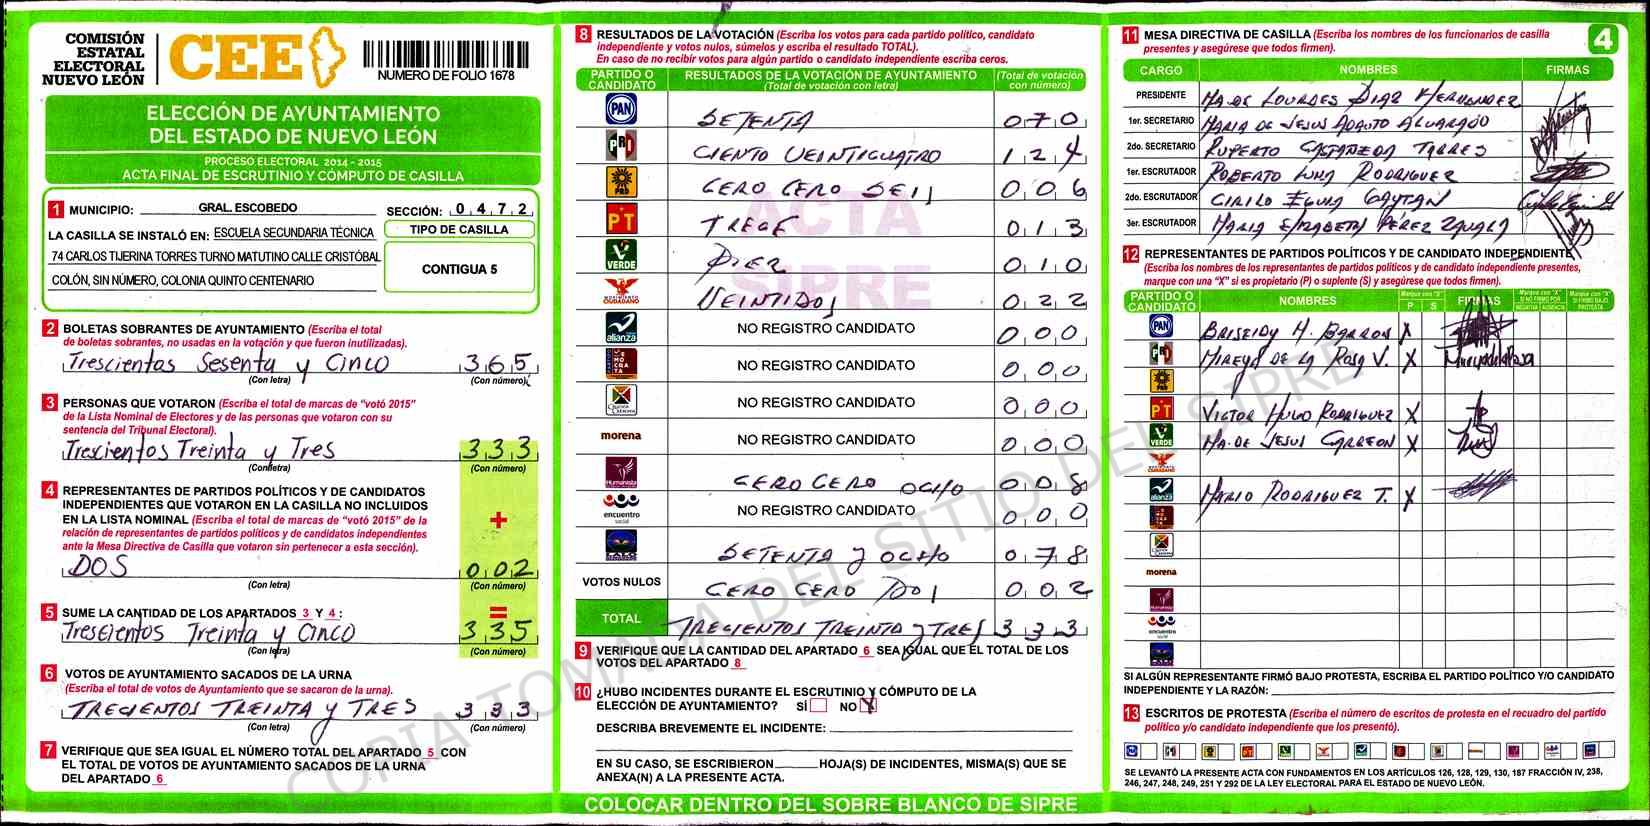 COMISIÓN
ESTATAL
ELECTORAL
NUEVO LEÓN
CEE
NUMERO DE FOLIO 1678
ELECCIÓN DE AYUNTAMIENTO
DEL ESTADO DE NUEVO LEÓN
PROCESO ELECTORAL 2014 - 2015
ACTA FINAL DE ESCRUTINIO Y CÓMPUTO DE CASILLA
1 MUNICIPIO: GRAL. ESCOBEDO SECCIÓN: 0 4 7 2
LA CASILLA SE INSTALÓ EN: ESCUELA SECUNDARIA TÉCNICA
74 CARLOS TIJERINA TORRES TURNO MATUTINO CALLE CRISTÓBAL
COLÓN, SIN NÚMERO, COLONIA QUINTO CENTENARIO
TIPO DE CASILLA
CONTIGUA 5
2 BOLETAS SOBRANTES DE AYUNTAMIENTO (Escriba el total
de boletas sobrantes, no usadas en la votación y que fueron inutilizadas).
Trescientos Sesenta y Cinco 3 6 5
(Con letra) (Con número)
3 PERSONAS QUE VOTARON (Escriba el total de marcas de "votó 2015"
de la Lista Nominal de Electores y de las personas que votaron con su
sentencia del Tribunal Electoral).
Trescientos Treinta y Tres 3 3 3
(Con letra) (Con número)
4 REPRESENTANTES DE PARTIDOS POLÍTICOS Y DE CANDIDATOS
INDEPENDIENTES QUE VOTARON EN LA CASILLA NO INCLUIDOS
EN LA LISTA NOMINAL (Escriba el total de marcas de "votó 2015" de la
relación de representantes de partidos políticos y de candidatos independientes
ante la Mesa Directiva de Casilla que votaron sin pertenecer a esta sección).
+
DOS 0 0 2
(Con letra) (Con número)
5 SUME LA CANTIDAD DE LOS APARTADOS 3 Y 4:
=
Trescientos Treinta y Cinco 3 3 5
(Con letra) (Con número)
6 VOTOS DE AYUNTAMIENTO SACADOS DE LA URNA
(Escriba el total de votos de Ayuntamiento que se sacaron de la urna).
TRECIENTOS TREINTA y TRES 3 3 3
(Con letra) (Con número)
7 VERIFIQUE QUE SEA IGUAL EL NÚMERO TOTAL DEL APARTADO 5 CON
EL TOTAL DE VOTOS DE AYUNTAMIENTO SACADOS DE LA URNA
DEL APARTADO 6
8 RESULTADOS DE LA VOTACIÓN (Escriba los votos para cada partido político, candidato
independiente y votos nulos, súmelos y escriba el resultado TOTAL).
En caso de no recibir votos para algún partido o candidato independiente escriba ceros.
PARTIDO O CANDIDATO
RESULTADOS DE LA VOTACIÓN DE AYUNTAMIENTO
(Total de votación con letra)
(Total de votación con número)
PAN SETENTA 0 7 0
PRD CIENTO VEINTICUATRO 1 2 4
PRD CERO CERO SEIS 0 0 6
PT TRECE 0 1 3
VERDE DIEZ 0 1 0
VEINTIDOS 0 2 2
alianza NO REGISTRO CANDIDATO 0 0 0
NO REGISTRO CANDIDATO 0 0 0
NO REGISTRO CANDIDATO 0 0 0
morena NO REGISTRO CANDIDATO 0 0 0
Humanista CERO CERO OCHO 0 0 8
encuentro social NO REGISTRO CANDIDATO 0 0 0
SETENTA y OCHO 0 7 8
VOTOS NULOS CERO CERO DOS 0 0 2
TOTAL TRECIENTOS TREINTA y TRES 3 3 3
9 VERIFIQUE QUE LA CANTIDAD DEL APARTADO 6 SEA IGUAL QUE EL TOTAL DE LOS
VOTOS DEL APARTADO 8
10 ¿HUBO INCIDENTES DURANTE EL ESCRUTINIO Y CÓMPUTO DE LA
ELECCIÓN DE AYUNTAMIENTO? SÍ NO X
DESCRIBA BREVEMENTE EL INCIDENTE:
EN SU CASO, SE ESCRIBIERON HOJA(S) DE INCIDENTES, MISMA(S) QUE SE
ANEXA(N) A LA PRESENTE ACTA.
COLOCAR DENTRO DEL SOBRE BLANCO DE SIPRE
ACTA
SIPRE
COPIA TOMADA DEL SITIO DEL SIPRE
11 MESA DIRECTIVA DE CASILLA (Escriba los nombres de los funcionarios de casilla
presentes y asegúrese que todos firmen).
4
CARGO NOMBRES FIRMAS
PRESIDENTE MA. DE LOURDES DIAZ HERNANDEZ
1er. SECRETARIO MARIA DE JESUS ADAUTO ALVARADO
2do. SECRETARIO RUPERTO CASTAÑEDA TORRES
1er. ESCRUTADOR ROBERTO LUNA RODRIGUEZ
2do. ESCRUTADOR CIRILO EGUIA GAYTAN
3er. ESCRUTADOR MARIA ELIZABETH PÉREZ ZAVALA
12 REPRESENTANTES DE PARTIDOS POLÍTICOS Y DE CANDIDATO INDEPENDIENTE
(Escriba los nombres de los representantes de partidos políticos y de candidato independiente presentes,
marque con una "X" si es propietario (P) o suplente (S) y asegúrese que todos firmen).
PARTIDO O CANDIDATO NOMBRES Marque con "X" P S FIRMAS
PAN BRISEIDY H. BARRON X
MIREYA DE LA ROSA V. X
PRD
PT VICTOR HUGO RODRIGUEZ X
VERDE MA. DE JESUS CARREON X
alianza MARIO RODRIGUEZ T. X
morena
encuentro social
SI ALGÚN REPRESENTANTE FIRMÓ BAJO PROTESTA, ESCRIBA EL PARTIDO POLÍTICO Y/O CANDIDATO
INDEPENDIENTE Y LA RAZÓN:
13 ESCRITOS DE PROTESTA (Escriba el número de escritos de protesta en el recuadro del partido
político y/o candidato independiente que los presentó).
SE LEVANTÓ LA PRESENTE ACTA CON FUNDAMENTOS EN LOS ARTÍCULOS 126, 128, 129, 130, 187 FRACCIÓN IV, 238,
246, 247, 248, 249, 251 Y 292 DE LA LEY ELECTORAL PARA EL ESTADO DE NUEVO LEÓN.